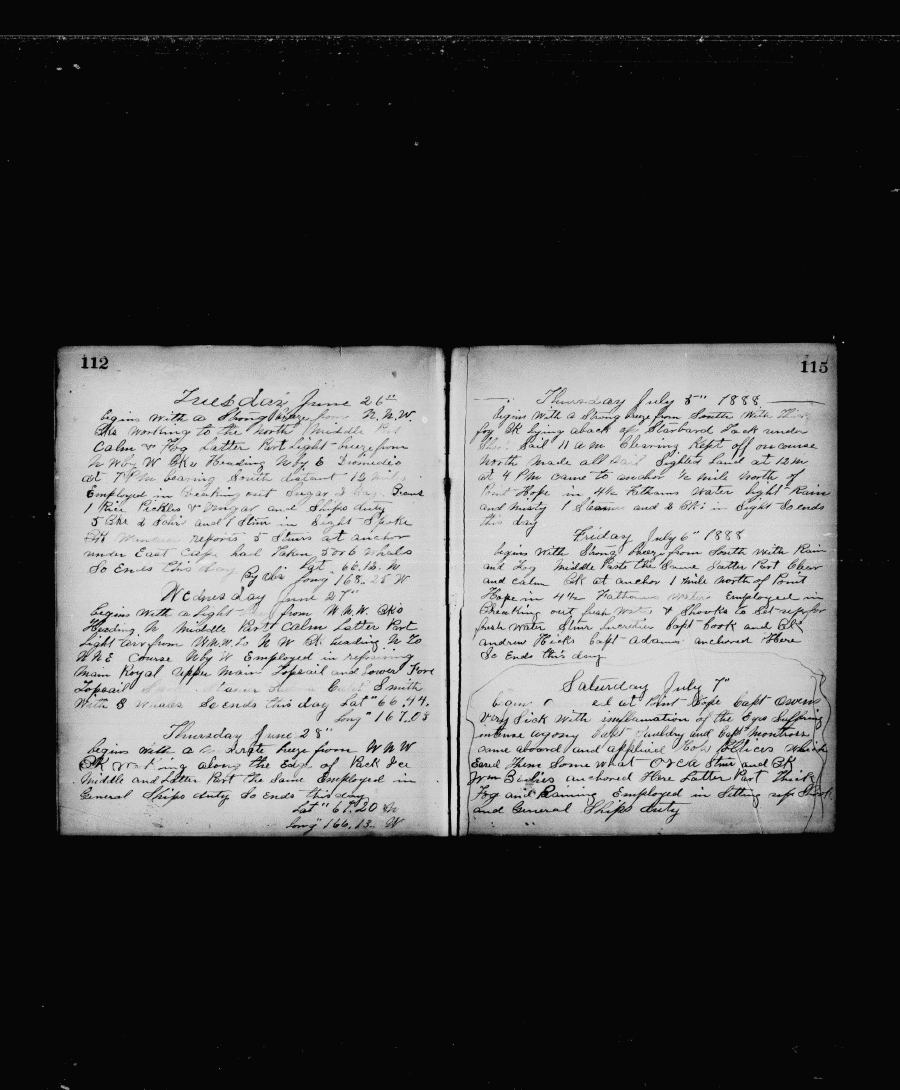 112
Tuesday June 26th
begins with a Strong breeze from N.N.W.
Bks Working to the north Middle Part
Calm & Fog Latter Part light breeze from
N W by W Bk Heading N by E Diomedio
at 7 PM bearing South distant 12
Employed in Breaking out Sugar
1 Rice Pickles & Vinegar and Ships duty
5 Bks 2 Schrs and 1 Stmr in Sight Spoke
reports 5 Stmrs at anchor
under East Cape had Taken 5 or 6 Whales
So Ends this day Lat. 66.12. N
Long 168.25 W
Wednesday June 27"
begins with a light from W.N.W. Bks
Heading N Middle Part Calm Latter Part
Light air from W.N.W. to N W Bk heading N to
N N E Course N by W Employed in repairing
Main Royal upper Main Topsail and Lower Fore
Topsail Capt Smith
With 8 Whales So ends this day Lat" 66.44.
Long" 167.08
Thursday June 28"
begins with a Moderate breeze from W N W
Bk Working along the Edge of Pack Ice
Middle and Latter Part the Same Employed in
General Ships duty So Ends this day
Lat" 67.20 N
Long" 166.13. W
115
Thursday July 5" 1888
begins With a Strong breeze from South With Thick
fog Bk lying aback on Starbord Tack under
Sail 11 a m Clearing Kept off on course
North made all Sail Sighted Land at 12 m
at 4 PM came to anchor 1/2 mile North of
Point Hope in 4 1/2 Fathoms Water light Rain
and misty 1 Steamer and 2 Bks in Sight So ends
this day
Friday July 6" 1888
begins With Strong breeze from South With Rain
and Fog Middle Part the Same Latter Part Clear
and calm Bk at anchor 1 mile north of Point
Hope in 4 1/2 Fathoms Water Employed in
Breaking out fresh Water & Shooks to Set up for
fresh Water Stmr Capt Cook and Bk
andrew Hicks Capt Adams anchored Here
So Ends this day
Saturday July 7"
at Point Hope Capt Owens
Very Sick With inflamation of the Eyes Suffering
intense agony Capt Gauldry and Capt Montross
came aboard and applied
Eased Them Some what Orca Stmr and Bk
Wm Baylies anchored Here Latter Part Thick
Fog and Raining Employed in Setting up Shook
and General Ships duty